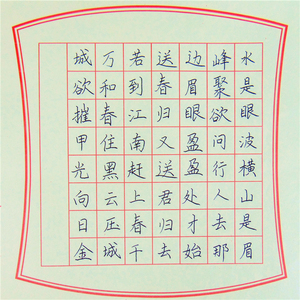 水是眼波横山是眉
峰聚欲问行人去那
边眉眼盈盈处才始
送春归又送君归去
若到江南赶上春千
万和春住黑云压城
城欲摧甲光向日金